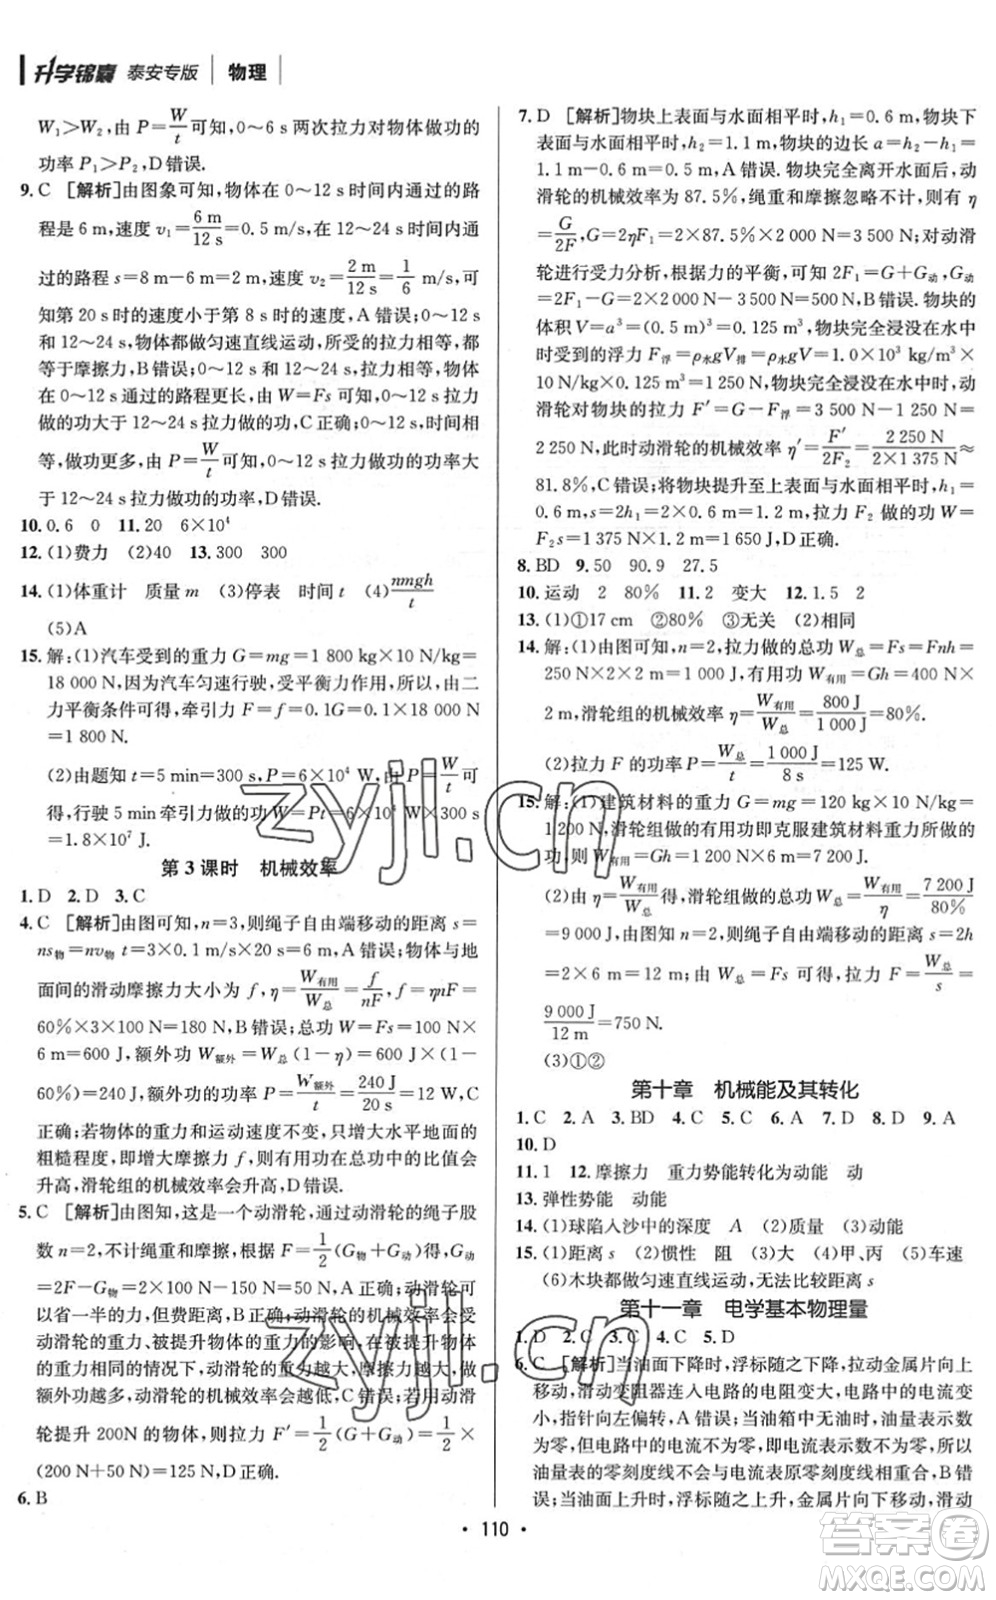 升学锦囊 泰安专版 | 物理
W₁>W₂,由 P=W/t可知,0~6 s两次拉力对物体做功的
功率 P₁>P₂,D错误.
9. C [解析]由图象可知,物体在 0~12 s时间内通过的路
程是 6 m,速度 v₁=6 m/12 s=0.5 m/s,在 12~24 s时间内通
过的路程 s=8 m-6 m=2 m,速度 v₂=2 m/12 s=1/6 m/s,可
知第 20 s时的速度小于第 8 s时的速度,A错误;0~12 s
和 12~24 s,物体都做匀速直线运动,所受的拉力相等,都
等于摩擦力,B错误;因为两次物体受到的拉力相等,物体
在 0~12 s通过的路程更长,由 W=Fs可知,0~12 s拉力
做的功大于 12~24 s拉力做的功,C正确;0~12 s时间相
等,做功更多,由 P=W/t可知,0~12 s拉力做功的功率大
于 12~24 s拉力做功的功率,D错误.
10. 0.6 0 11. 20 6×10⁴
12. (1)费力 (2)40 13. 300 300
14. (1)体重计 质量 m (3)停表 时间 t (4)nmgh/t
(5)A
15. 解:(1)汽车受到的重力 G=mg=1 800 kg×10 N/kg=
18 000 N,因为汽车匀速行驶,受平衡力作用,所以由二
力平衡条件可得,牵引力 F=f=0.1G=0.1×18 000 N
=1 800 N.
(2)由题知 t=5 min=300 s,P=6×10⁴ W,由 P=W/t可
得,行驶 5 min牵引力做的功 W=Pt=6×10⁴ W×300 s
=1.8×10⁷ J.
第 3 课时 机械效率
1. D 2. D 3. C
4. C [解析]由图可知,n=3,则绳子自由端移动的距离 s=
ns物=nv物 t=3×0.1 m/s×20 s=6 m,A错误;物体与地
面间的滑动摩擦力大小为 f,η=W有用/W总=f/nF,f=ηnF=
60%×3×100 N=180 N,B错误;总功 W=Fs=100 N×
6 m=600 J,额外功 W额外=W总(1-η)=600 J×(1-
60%)=240 J,额外功的功率 P=W额外/t=240 J/20 s=12 W,C
正确;若物体的重力和运动速度不变,只增大水平地面的
粗糙程度,即增大摩擦力 f,则有用功在总功中的比值会
升高,滑轮组的机械效率会升高,D错误.
5. C [解析]由图知,这是一个动滑轮,通过动滑轮的绳子股
数 n=2,不计绳重和摩擦,根据 F=1/2(G物+G动)得,G动
=2F-G物=2×100 N-150 N=50 N,A正确;动滑轮可
以省一半的力,但费距离,B正确;动滑轮的机械效率与
动滑轮的重力、被提升物体的重力有关,在被提升物体的
重力相同的情况下,动滑轮的重力越大,机械效率越低,做
额外功越多,动滑轮的机械效率越低,C错误;若用动滑
轮提升 200N的物体,则拉力 F′=1/2(G+G动)=1/2
×(200 N+50 N)=125 N,D正确.
6. B
7. D [解析]物块上表面与水面相平时,h₁=0.6 m,物块下
表面与水面相平时,h₂=1.1 m,物块的边长 a=h₂-h₁=
1.1 m-0.6 m=0.5 m,A错误.物块完全离开水面后,动
滑轮的机械效率为 87.5%,绳重和摩擦忽略不计,则有 η
=G/2F,G=2ηF₁=2×87.5%×2 000 N=3 500 N;对动滑
轮进行受力分析,根据力的平衡,可知 2F₁=G+G动,G动=
2F₁-G=2×2 000 N-3 500 N=500 N,B错误.物块的
体积 V=a³=(0.5 m)³=0.125 m³,物块完全浸没在水中
时受到的浮力 F浮=ρ水gV排=ρ水gV=1.0×10³ kg/m³×10
N/kg×0.125 m³=1 250 N;物块完全浸没在水中时,动
滑轮对物块的拉力 F′=G-F浮=3 500 N-1 250 N=
2 250 N,此时动滑轮的机械效率 η′=F′/2F₂=2 250 N/2×1 375 N≈
81.8%,C错误.将物块提升至上表面与水面相平,h₁=
0.6 m,s=2h₁=2×0.6 m=1.2 m,拉力 F₂ 做的功 W=
F₂s=1 375 N×1.2 m=1 650 J,D正确.
8. BD 9. 50 90.9 27.5
10. 运动 2 80% 11. 2 变大 12. 1.5 2
13. (1)①17 cm ②80% ③无关 (2)相同
14. 解:(1)由图可知,n=2,拉力做的总功 W总=Fs=Fnh=
250 N×2×2 m=1 000 J,有用功 W有用=Gh=400 N×
2 m=800 J,滑轮组的机械效率 η=W有用/W总=800 J/1 000 J=80%.
(2)拉力 F 的功率 P=W总/t=1 000 J/8 s=125 W.
15. 解:(1)建筑材料的重力 G=mg=120 kg×10 N/kg=
1 200 N,滑轮组做的有用功即克服建筑材料重力所做的
功,则 W有用=Gh=1 200 N×6 m=7 200 J.
(2)由 η=W有用/W总得,滑轮组做的总功 W总=W有用/η=7 200 J/80%
=9 000 J,由图知 n=2,则绳子自由端移动的距离 s=2h
=2×6 m=12 m;由 W总=Fs 可得,拉力 F=W总/s=
9 000 J/12 m=750 N.
(3)①②
第十章 机械能及其转化
1. C 2. A 3. BD 4. C 5. C 6. A 7. D 8. D 9. A
10. D
11. 1 12. 摩擦力 重力势能转化为动能 动
13. 弹性势能 动能
14. (1)球陷入沙中的深度 A (2)质量 (3)动能
15. (1)距离 s (2)惯性 阻 (3)大 (4)甲、丙 (5)车速
(6)木块都做匀速直线运动,无法比较距离 s
第十一章 电学基本物理量
1. D 2. C 3. C 4. C 5. D
6. C [解析]当油面下降时,浮标随之下降,拉动金属片向上
移动,滑动变阻器连入电路的电阻变大,电路中的电流变
小,指针向左偏转,A错误;当油箱中无油时,油量表示数
为零,但电路中的电流不为零,所以
油量表的零刻度线与电流表原零刻度线相重合,B
错误;当油面上升时,浮标随之上升,金属片向下移动,滑动
· 110 ·
zyjl.cn
zyjl.cn
答案圈
MXQE.COM